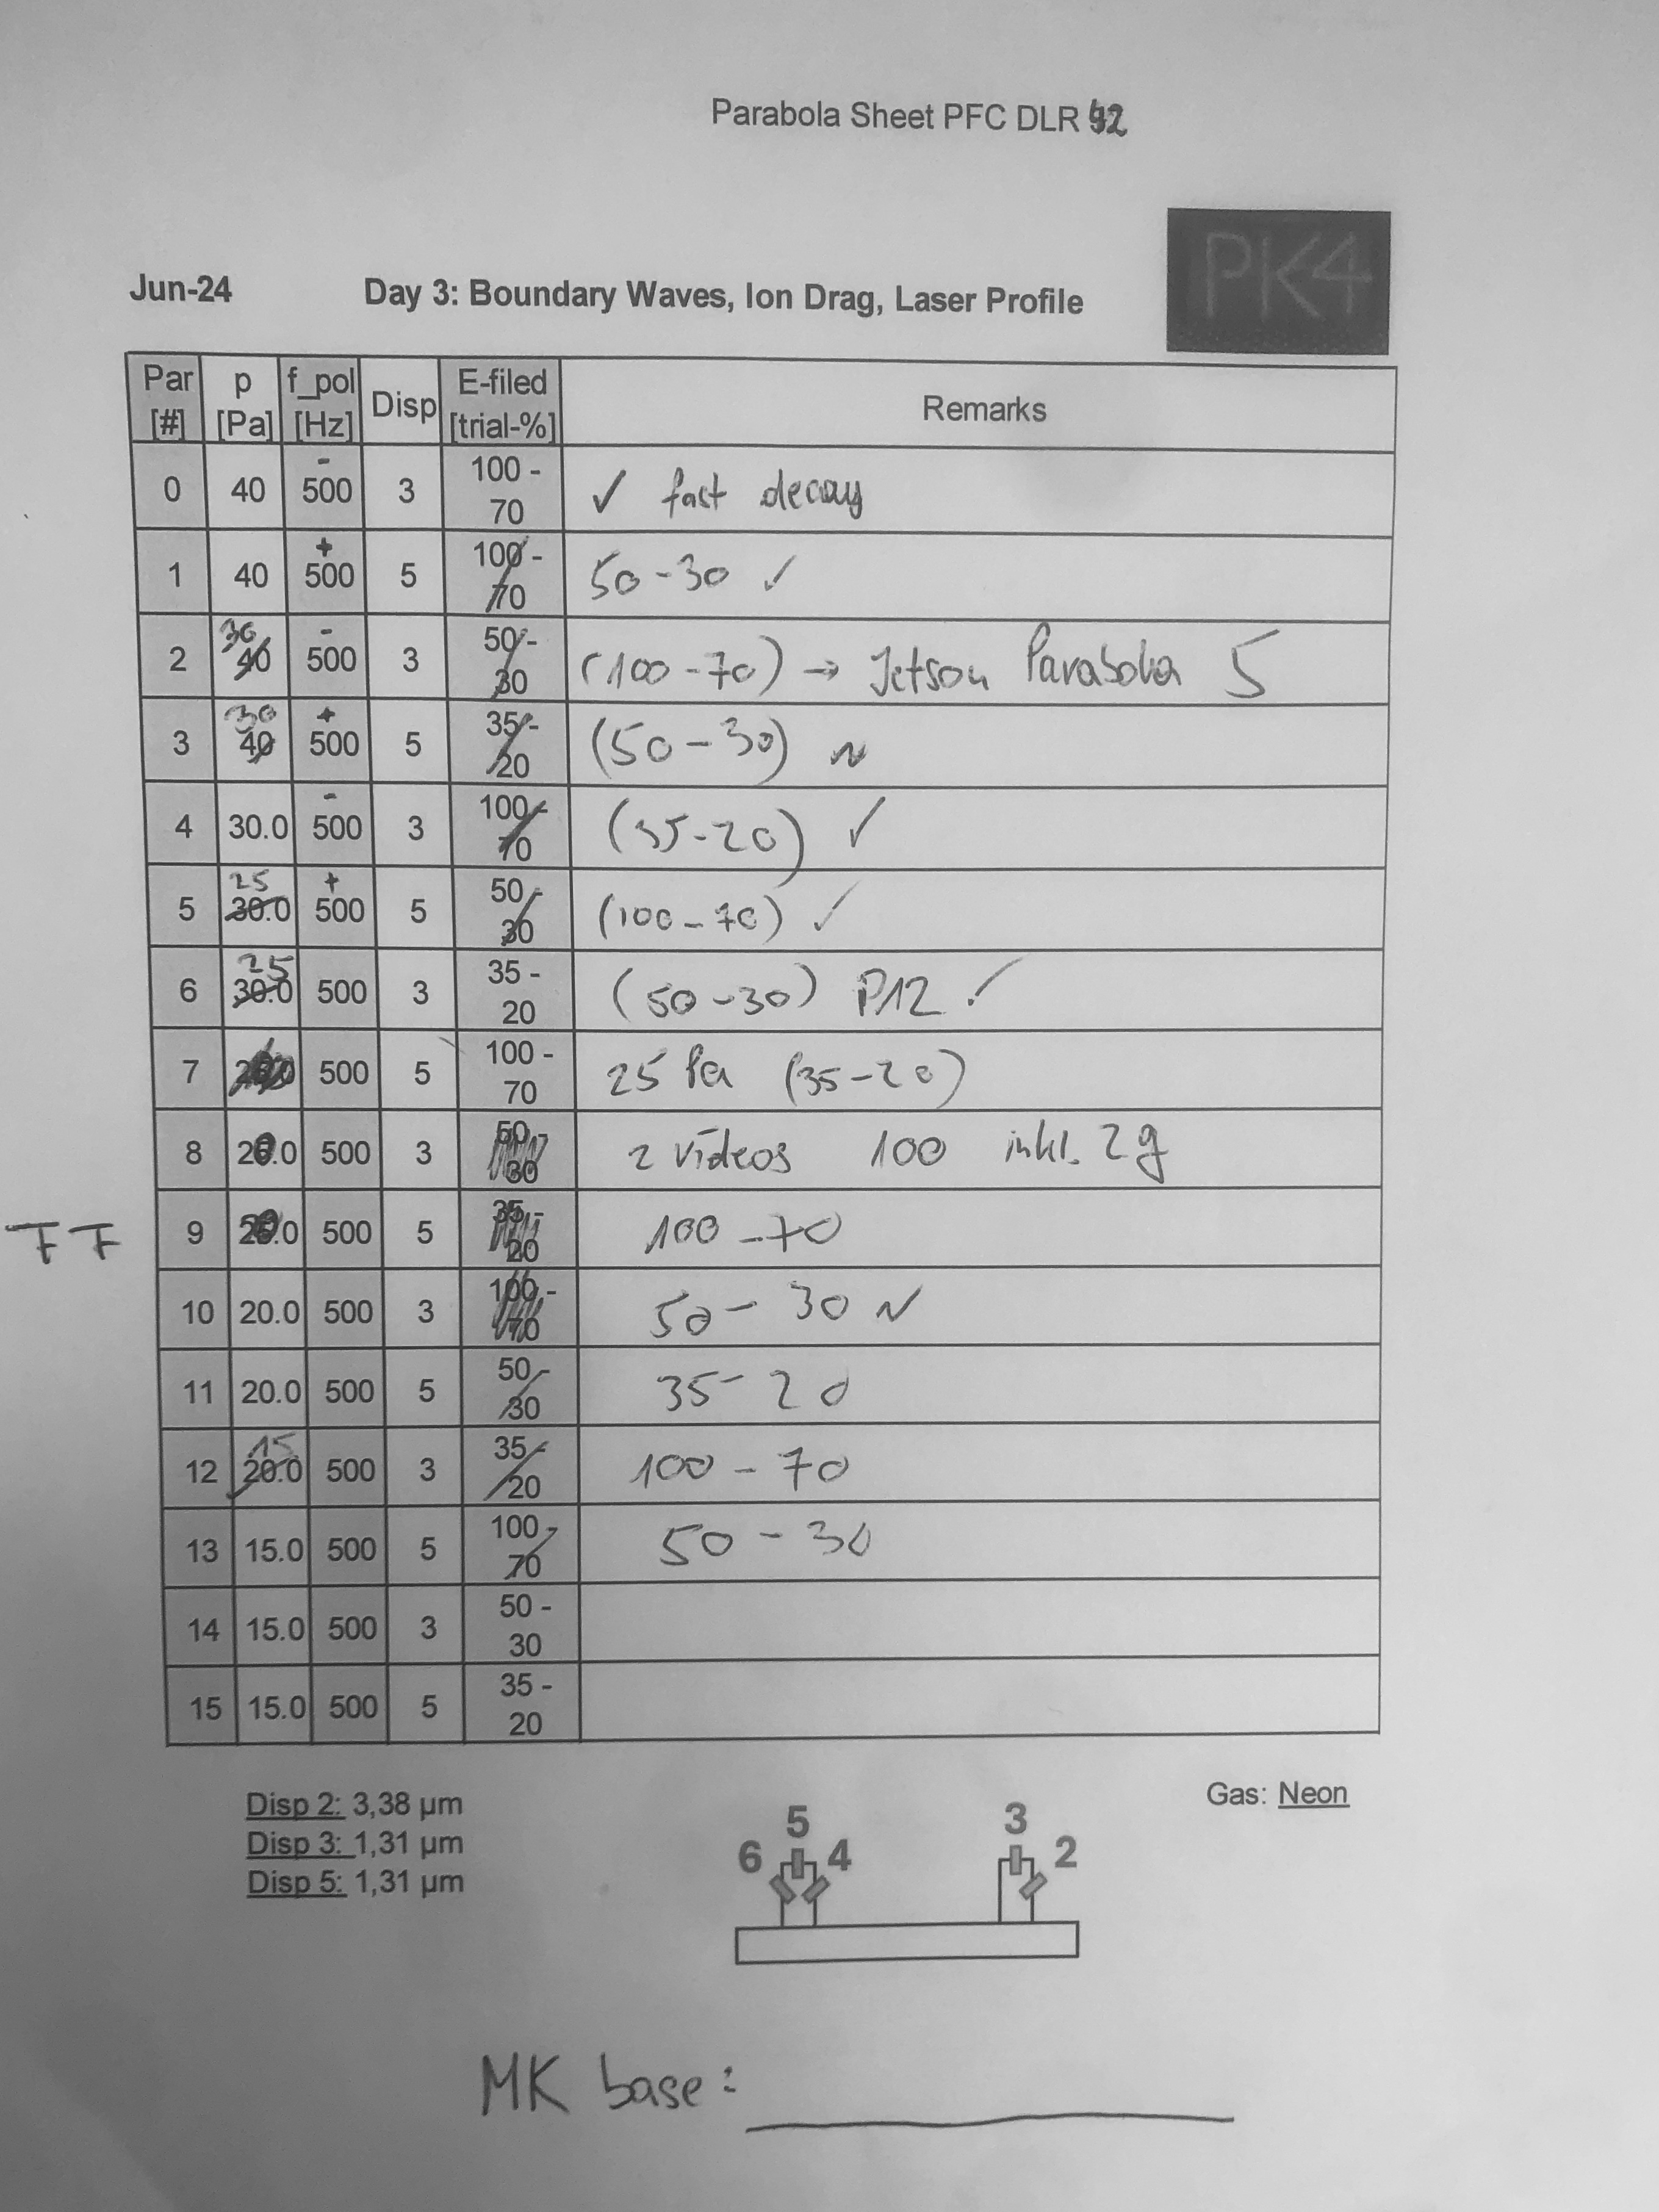 Parabola Sheet PFC DLR 42
PK4
Jun-24 Day 3: Boundary Waves, Ion Drag, Laser Profile
Par [#] p [Pa] f_pol [Hz] Disp E-filed [trial-%] Remarks
0 40 - 500 3 100 - 70 ✓ fast decay
1 40 + 500 5 100 - 70 50-30 ✓
2 30 40 - 500 3 50 - 30 (100-70) → Jetson Parabola 5
3 30 40 + 500 5 35 - 20 (50-30) ~
4 30.0 - 500 3 100 - 70 (35-20) ✓
5 25 30.0 + 500 5 50 - 30 (100-70) ✓
6 25 30.0 500 3 35 - 20 (50-30) P12 ✓
7 500 5 100 - 70 25 Pa (35-20)
8 500 3 50 - 30 2 videos 100 inkl. 2g
FF 9 500 5 35 - 20 100-70
10 20.0 500 3 100 - 70 50-30 ~
11 20.0 500 5 50 - 30 35-20
12 15 20.0 500 3 35 - 20 100-70
13 15.0 500 5 100 - 70 50-30
14 15.0 500 3 50 - 30
15 15.0 500 5 35 - 20
Disp 2: 3,38 µm
Disp 3: 1,31 µm
Disp 5: 1,31 µm
6 5 4 3 2
Gas: Neon
MK base: